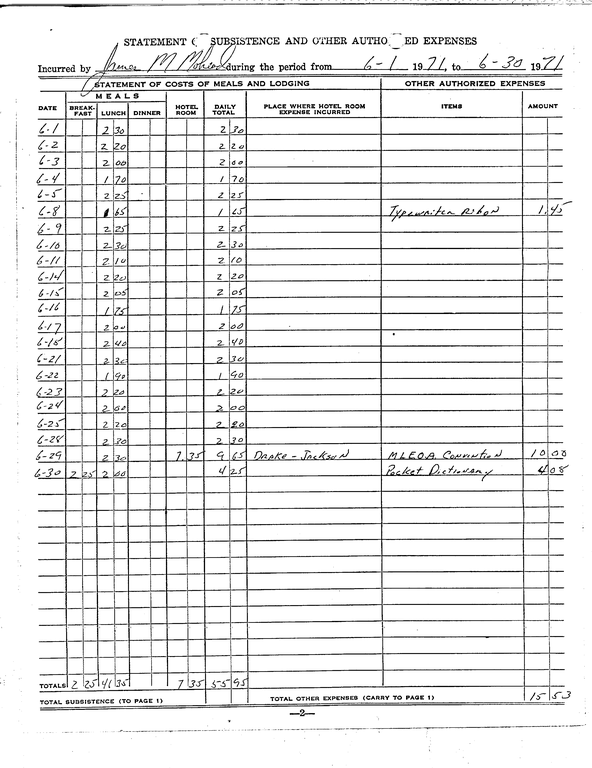 STATEMENT O SUBSISTENCE AND OTHER AUTHO ED EXPENSES
Incurred by James M during the period from 6-1 1971, to 6-30 1971
STATEMENT OF COSTS OF MEALS AND LODGING OTHER AUTHORIZED EXPENSES
MEALS
DATE BREAK-FAST LUNCH DINNER HOTEL ROOM DAILY TOTAL PLACE WHERE HOTEL ROOM EXPENSE INCURRED ITEMS AMOUNT
6-1 2 30 2 30
6-2 2 20 2 20
6-3 2 00 2 00
6-4 1 70 1 70
6-5 2 25 2 25
6-8 1 65 1 65 Typewriter Ribon 1.45
6-9 2 25 2 25
6-10 2 30 2 30
6-11 2 10 2 10
6-14 2 20 2 20
6-15 2 05 2 05
6-16 1 75 1 75
6-17 2 00 2 00
6-18 2 40 2 40
6-21 2 30 2 30
6-22 1 90 1 90
6-23 2 20 2 20
6-24 2 00 2 00
6-25 2 20 2 20
6-28 2 30 2 30
6-29 2 30 7 35 9 65 DRAKE - JACKSON M.L.E.O.A. Convention 10 00
6-30 2 25 2 00 4 25 Pocket Dictionary 4 08
TOTALS 2 25 41 35 7 35 55 95
TOTAL SUBSISTENCE (TO PAGE 1) TOTAL OTHER EXPENSES (CARRY TO PAGE 1) 15 53
—2—